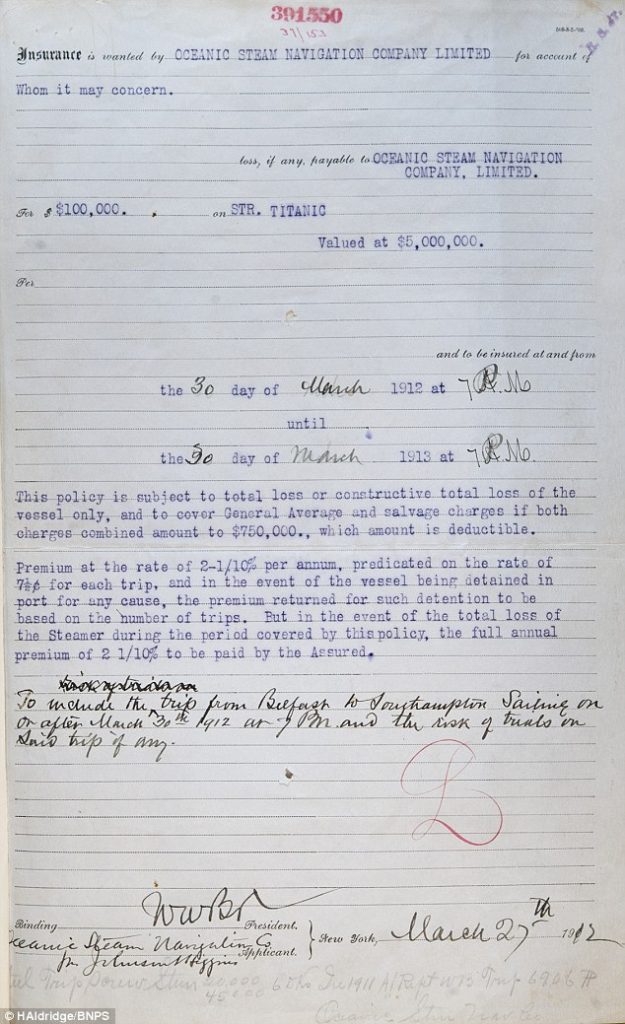 391550
37/153
Insurance is wanted by OCEANIC STEAM NAVIGATION COMPANY LIMITED for account of
Whom it may concern.
loss, if any, payable to OCEANIC STEAM NAVIGATION
COMPANY, LIMITED.
For $ $100,000. on STR. TITANIC
Valued at $5,000,000.
For
and to be insured at and from
the 30 day of March 1912 at 7 P.M
until
the 30 day of March 1913 at 7 P.M.
This policy is subject to total loss or constructive total loss of the
vessel only, and to cover General Average and salvage charges if both
charges combined amount to $750,000., which amount is deductible.
Premium at the rate of 2-1/10% per annum, predicated on the rate of
7½¢ for each trip, and in the event of the vessel being detained in
port for any cause, the premium returned for such detention to be
based on the number of trips. But in the event of the total loss of
the Steamer during the period covered by this policy, the full annual
premium of 2 1/10% to be paid by the Assured.
To include the trip from Belfast to Southampton Sailing on
or after March 30th 1912 at 7 PM and the risk of trials on
said trip if any.
Binding President.
Oceanic Steam Navigation Co Applicant. New York, March 27th 1912
pr Johnson Higgins
© HAldridge/BNPS